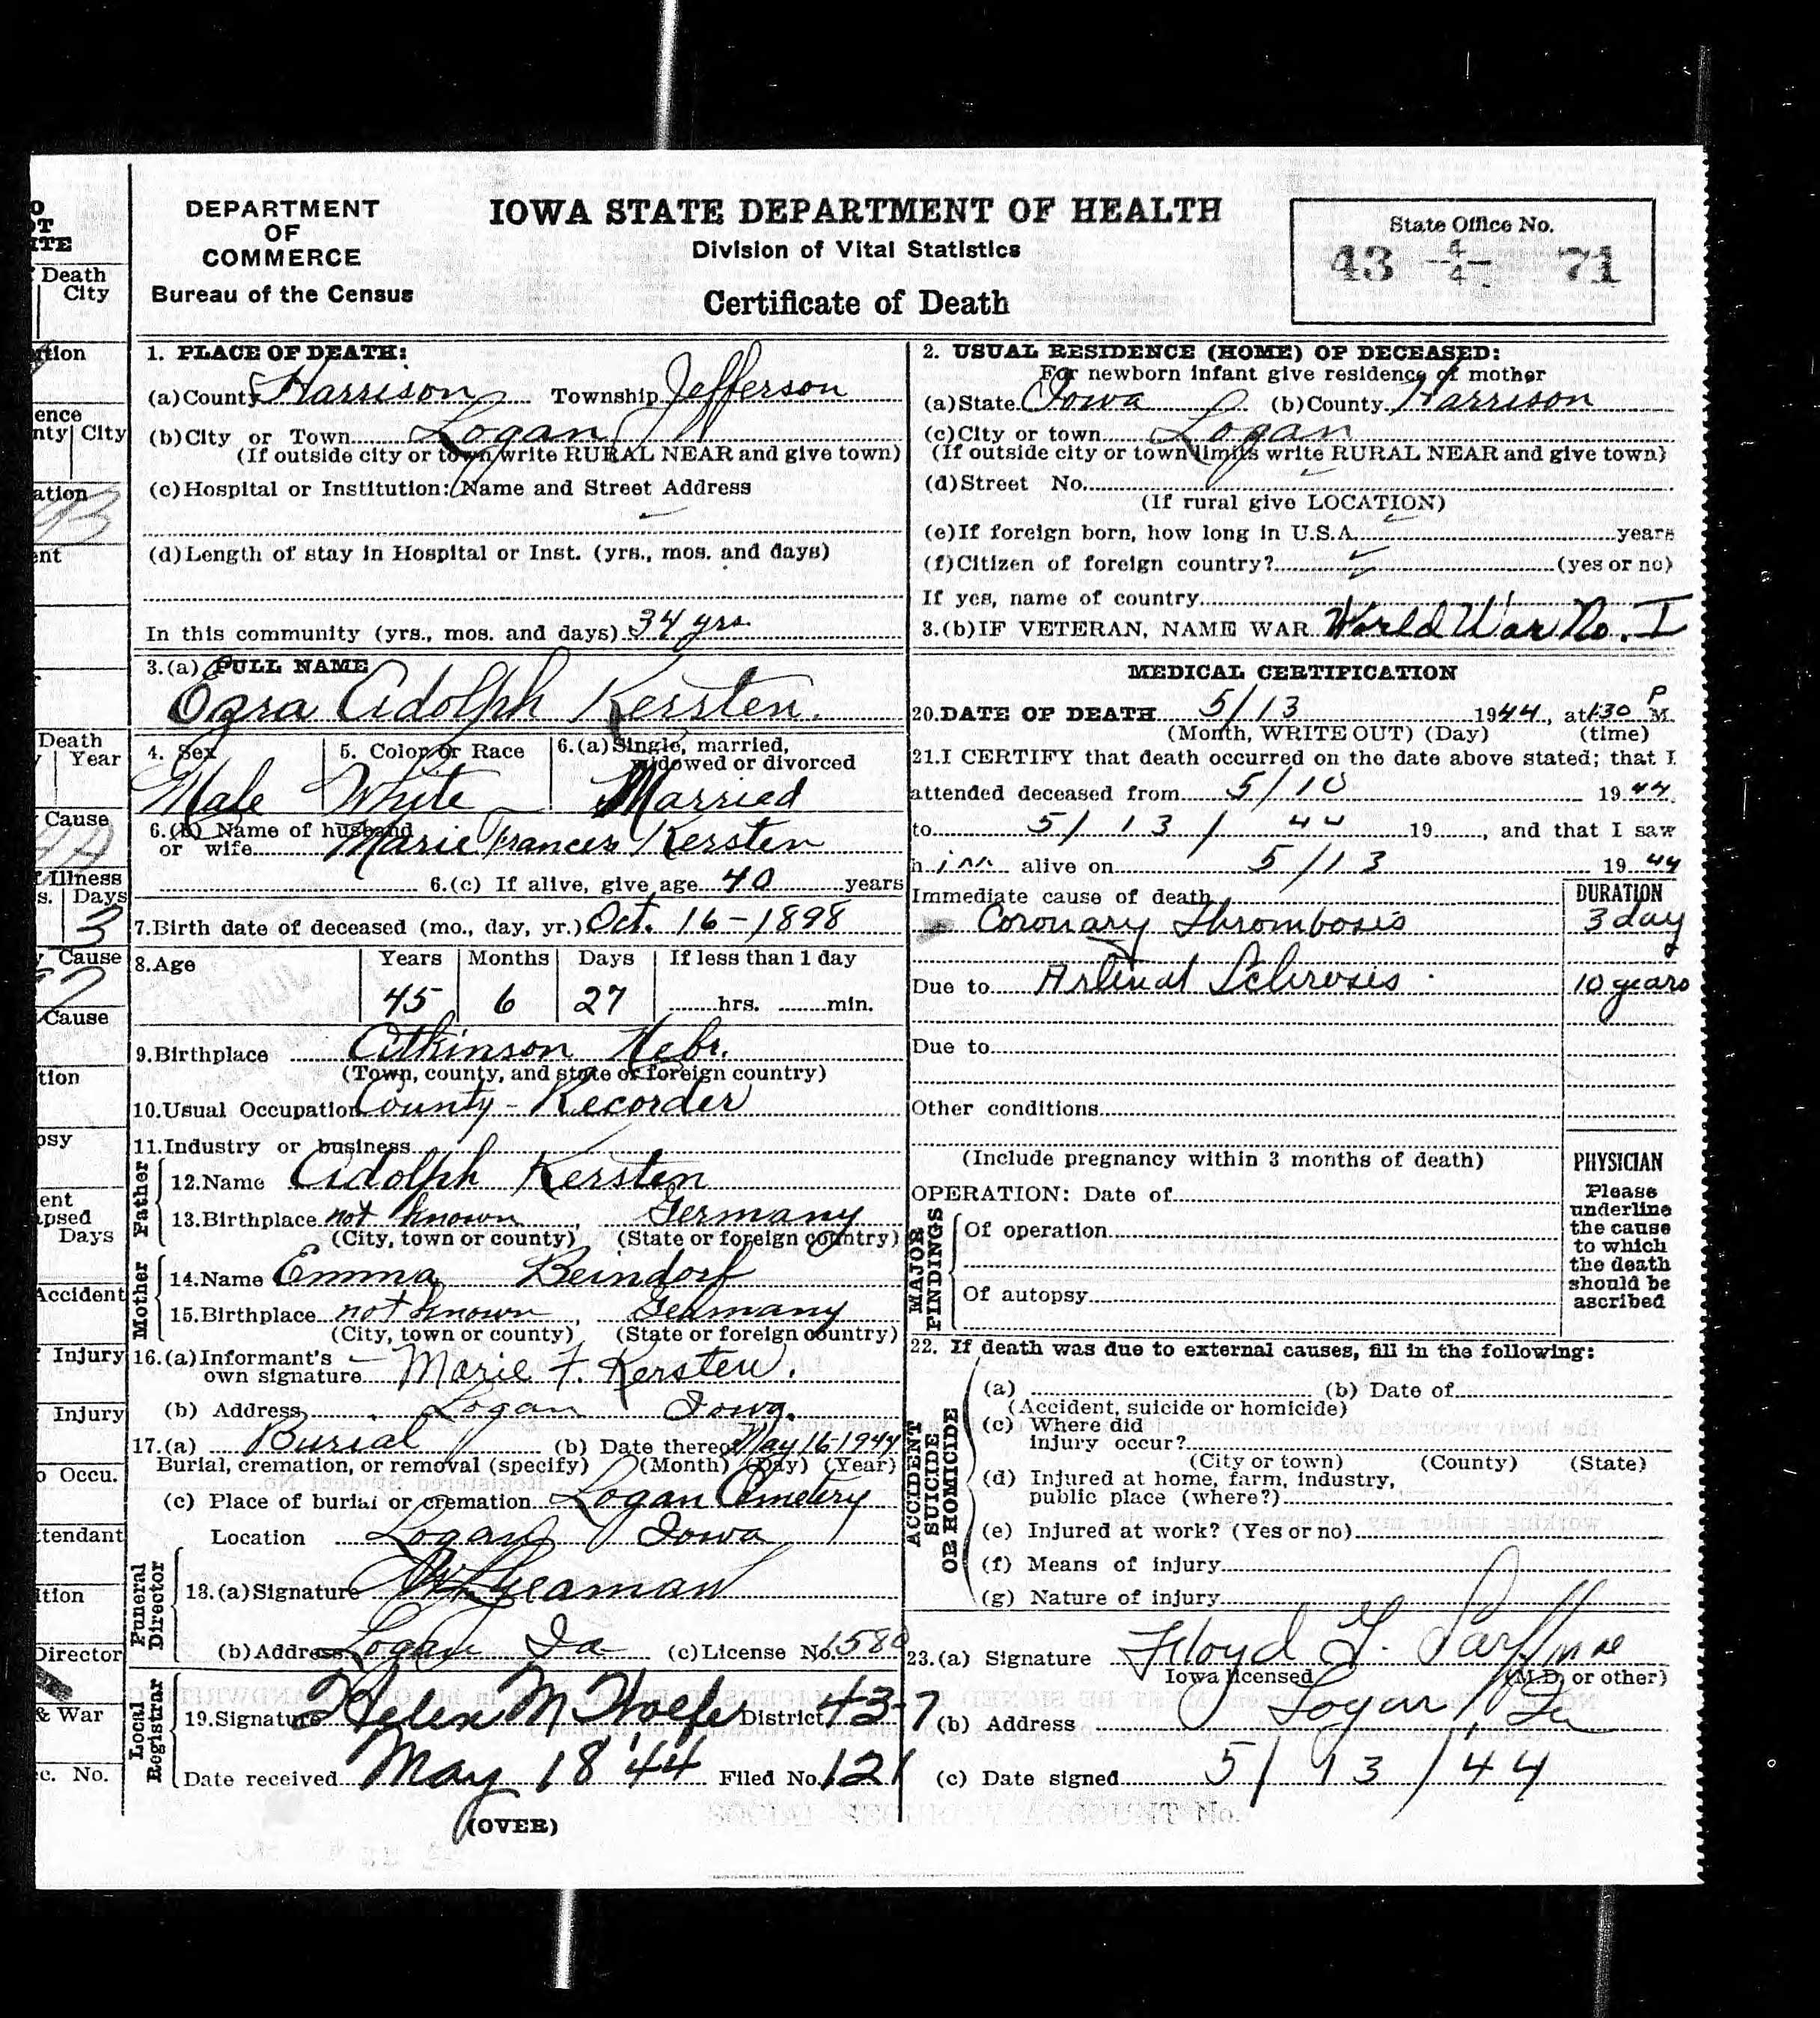 DEPARTMENT
OF
COMMERCE
Bureau of the Census
IOWA STATE DEPARTMENT OF HEALTH
Division of Vital Statistics
Certificate of Death
State Office No.
43 4/4 71
1. PLACE OF DEATH:
(a) County Harrison Township Jefferson
(b) City or Town Logan
(If outside city or town write RURAL NEAR and give town)
(c) Hospital or Institution: Name and Street Address
(d) Length of stay in Hospital or Inst. (yrs., mos. and days)
In this community (yrs., mos. and days) 34 yrs.
2. USUAL RESIDENCE (HOME) OF DECEASED:
For newborn infant give residence of mother
(a) State Iowa (b) County Harrison
(c) City or town Logan
(If outside city or town limits write RURAL NEAR and give town)
(d) Street No.
(If rural give LOCATION)
(e) If foreign born, how long in U.S.A. years
(f) Citizen of foreign country? (yes or no)
If yes, name of country
3.(b) IF VETERAN, NAME WAR World War No. I
3.(a) FULL NAME
Ezra Adolph Kersten.
4. Sex 5. Color or Race 6.(a) Single, married,
widowed or divorced
Male White Married
6.(b) Name of husband
or wife Marie Frances Kersten
6.(c) If alive, give age 40 years
7. Birth date of deceased (mo., day, yr.) Oct. 16-1898
8. Age Years Months Days If less than 1 day
45 6 27 hrs. min.
9. Birthplace Atkinson Nebr.
(Town, county, and state or foreign country)
10. Usual Occupation County-Recorder
11. Industry or business
Father
12. Name Adolph Kersten
13. Birthplace not known, Germany
(City, town or county) (State or foreign country)
Mother
14. Name Emma Beindorf
15. Birthplace not known, Germany
(City, town or county) (State or foreign country)
16.(a) Informant's
own signature Marie F. Kersten.
(b) Address Logan Iowa.
17.(a) Burial (b) Date thereof May 16-1944
Burial, cremation, or removal (specify) (Month) (Day) (Year)
(c) Place of burial or cremation Logan Cemetery
Location Logan Iowa
Funeral Director
18.(a) Signature
(b) Address Logan Ia (c) License No. 1580
Local Registrar
19. Signature Helen M. District 43-7
Date received May 18 '44 Filed No. 121
(OVER)
MEDICAL CERTIFICATION
20. DATE OF DEATH 5/13 1944, at 1:30 P M.
(Month, WRITE OUT) (Day) (time)
21. I CERTIFY that death occurred on the date above stated; that I
attended deceased from 5/10 1944
to 5/13/44 19, and that I saw
h im alive on 5/13 1944
Immediate cause of death DURATION
Coronary Thrombosis 3 day
Due to Arterial Sclerosis 10 years
Due to
Other conditions
(Include pregnancy within 3 months of death)
PHYSICIAN
Please
underline
the cause
to which
the death
should be
ascribed
OPERATION: Date of
MAJOR FINDINGS
Of operation
Of autopsy
22. If death was due to external causes, fill in the following:
ACCIDENT SUICIDE OR HOMICIDE
(a) (b) Date of
(Accident, suicide or homicide)
(c) Where did
injury occur?
(City or town) (County) (State)
(d) Injured at home, farm, industry,
public place (where?)
(e) Injured at work? (Yes or no)
(f) Means of injury
(g) Nature of injury
23.(a) Signature Floyd
Iowa licensed (M.D. or other)
(b) Address Logan, Ia
(c) Date signed 5/13/44
Death
City
ence
nty City
ation
ent
Death
Year
Cause
Illness
s. Days
3
Cause
Cause
tion
psy
ent
apsed
Days
Accident
Injury
Injury
o Occu.
ttendant
ition
Director
& War
c. No.